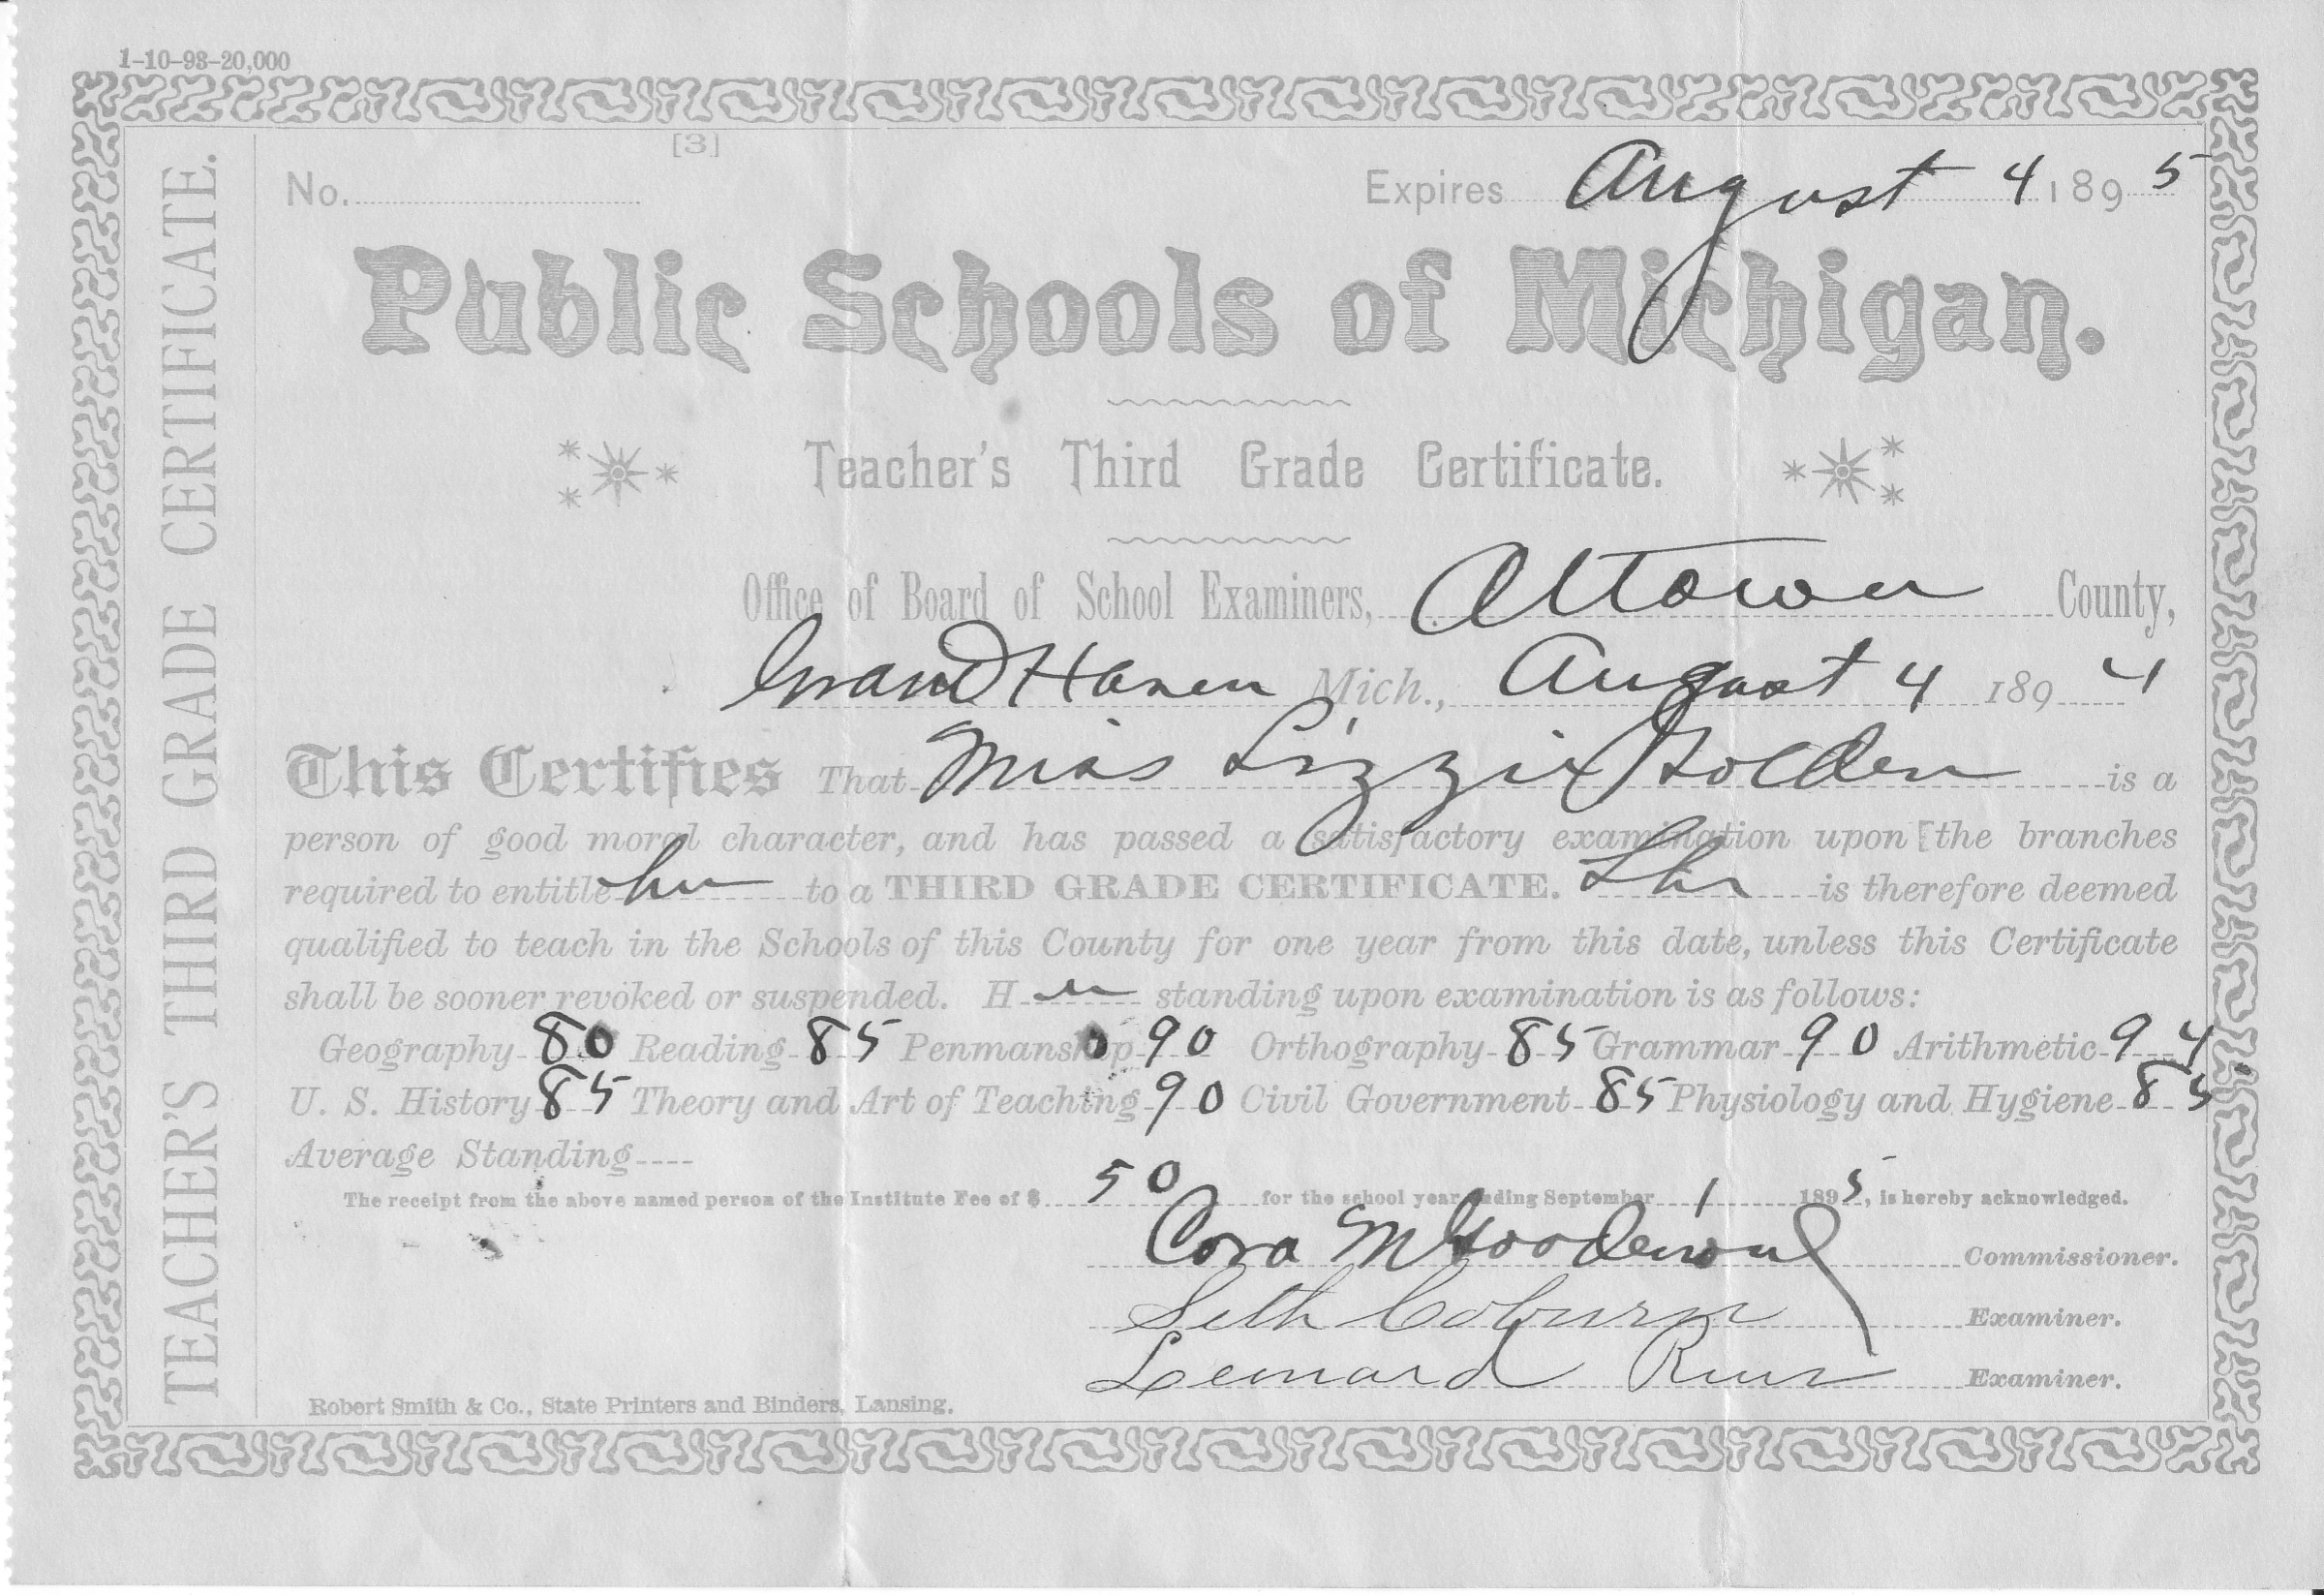 1-10-93-20,000
[3]
No. Expires August 4 1895
TEACHER'S THIRD GRADE CERTIFICATE.
Public Schools of Michigan.
Teacher's Third Grade Certificate.
Office of Board of School Examiners, Ottawa County,
Grand Haven Mich., August 4 1894
This Certifies That Miss Lizzie Holden is a
person of good moral character, and has passed a satisfactory examination upon the branches
required to entitle her to a THIRD GRADE CERTIFICATE. She is therefore deemed
qualified to teach in the Schools of this County for one year from this date, unless this Certificate
shall be sooner revoked or suspended. Her standing upon examination is as follows:
Geography 80 Reading 85 Penmanship 90 Orthography 85 Grammar 90 Arithmetic 94
U. S. History 85 Theory and Art of Teaching 90 Civil Government 85 Physiology and Hygiene 85
Average Standing
The receipt from the above named person of the Institute Fee of $ 50 for the school year ending September 1 1895, is hereby acknowledged.
Cora M Goodenow Commissioner.
Seth Coburn Examiner.
Examiner.
Robert Smith & Co., State Printers and Binders, Lansing.